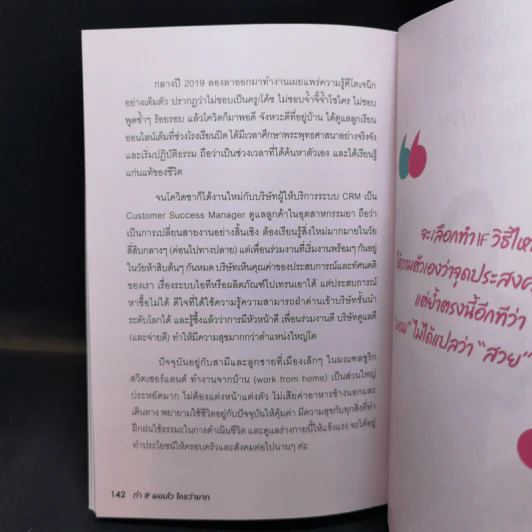 กลางปี 2019 ลองลาออกมาทำงานเผยแพร่ความรู้คีโตเจนิก
อย่างเต็มตัว ปรากฏว่าไม่ชอบเป็นครู/โค้ช ไม่ชอบจ้ำจี้จ้ำไชใคร ไม่ชอบ
พูดซ้ำๆ ร้อยรอบ แล้วโควิดก็มาพอดี จังหวะดีที่อยู่บ้าน ได้ดูแลลูกเรียน
ออนไลน์เต็มที่ช่วงโรงเรียนปิด ได้มีเวลาศึกษาพระพุทธศาสนาอย่างจริงจัง
และเริ่มปฏิบัติธรรม ถือว่าเป็นช่วงเวลาที่ได้ค้นหาตัวเอง และได้เรียนรู้
แก่นแท้ของชีวิต
จนโควิดซาก็ได้งานใหม่กับบริษัทผู้ให้บริการระบบ CRM เป็น
Customer Success Manager ดูแลลูกค้าในอุตสาหกรรมยา ถือว่า
เป็นการเปลี่ยนสายงานอย่างสิ้นเชิง ต้องเรียนรู้สิ่งใหม่มากมายในวัย
สี่สิบกลางๆ (ค่อนไปทางปลาย) แต่เพื่อนร่วมงานที่เริ่มงานพร้อมๆ กันอยู่
ในวัยห้าสิบต้นๆ กันหมด บริษัทเห็นคุณค่าของประสบการณ์และทัศนคติ
ของเรา เรื่องระบบไอทีหรือผลิตภัณฑ์ไปเทรนเอาได้ แต่ประสบการณ์
หาซื้อไม่ได้ ดีใจที่ได้ใช้ความรู้ความสามารถฝ่าด่านเข้าบริษัทชั้นนำ
ระดับโลกได้ และรู้ซึ้งแล้วว่าการมีหัวหน้าดี เพื่อนร่วมงานดี บริษัทดูแลดี
(และจ่ายดี) ทำให้มีความสุขมากกว่าตำแหน่งใหญ่โต
ปัจจุบันอยู่กับสามีและลูกชายที่เมืองเล็กๆ ในมณฑลซูริก
สวิตเซอร์แลนด์ ทำงานจากบ้าน (work from home) เป็นส่วนใหญ่
ประหยัดมาก ไม่ต้องแต่งหน้าแต่งตัว ไม่เสียค่าอาหารข้างนอกและ
เดินทาง พยายามใช้ชีวิตอยู่กับปัจจุบันให้คุ้มค่า มีความสุขกับทุกสิ่งที่ทำ
ฝึกฝนใช้ธรรมะในการดำเนินชีวิต และดูแลร่างกายนี้ให้แข็งแรง จะได้อยู่
ทำประโยชน์ให้ครอบครัวและสังคมต่อไปนานๆ ค่ะ
142 ทำ IF ผอมไว ใครว่ายาก
จะเลือกทำ IF วิธีไหน
ให้ถามตัวเองว่าจุดประสงค์
แต่ย้ำตรงนี้อีกทีว่า
"ผอม" ไม่ได้แปลว่า "สวย"